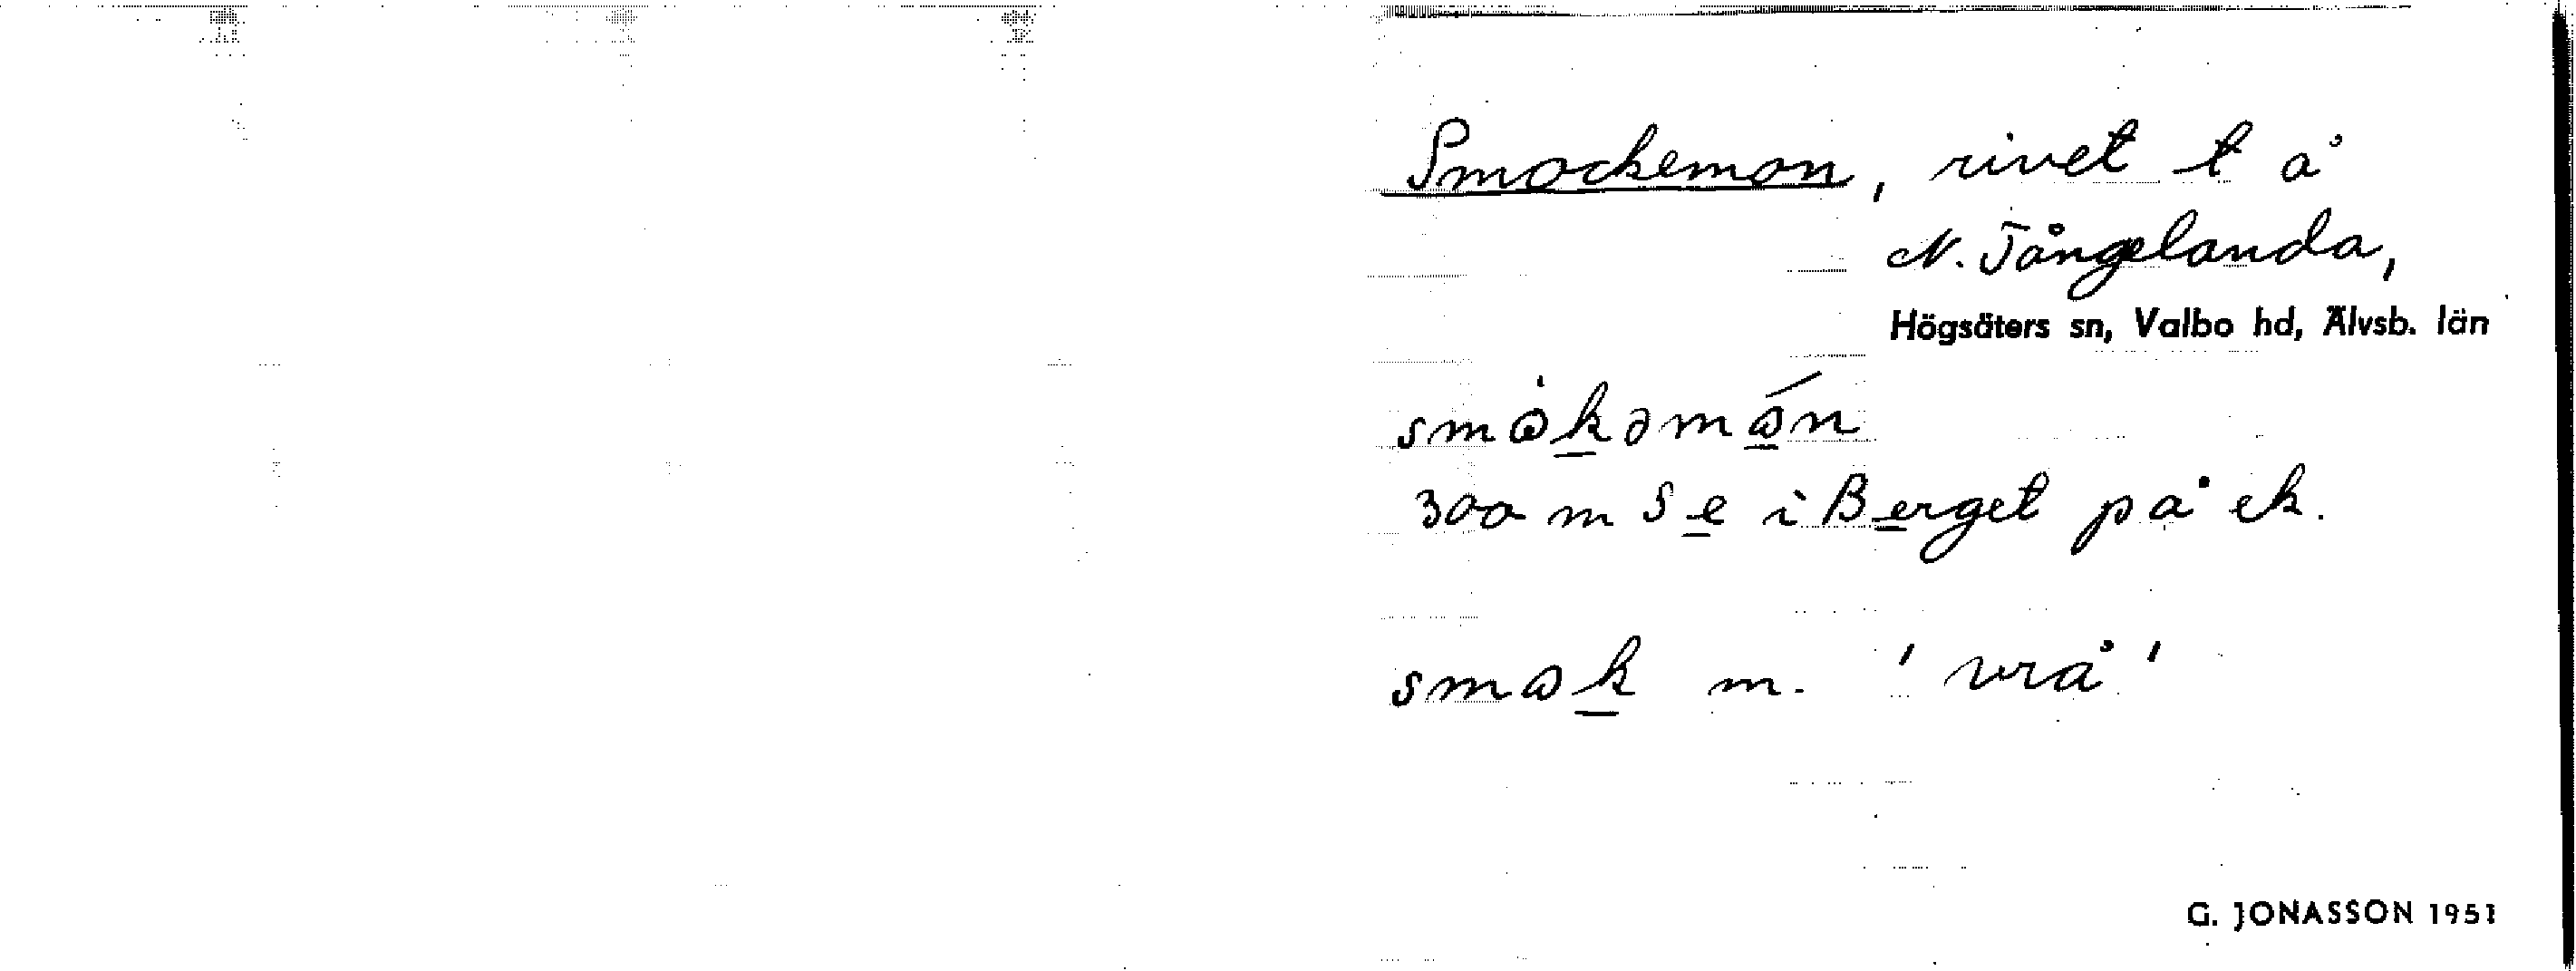 Smockemon, rivet t å
N. Tångelanda,
Högsäters sn, Valbo hd, Älvsb. län
smɷ̀kəmɷ́n
300 m S e i Berget på ek.
smɷk m. 'vrå'
G. JONASSON 1951